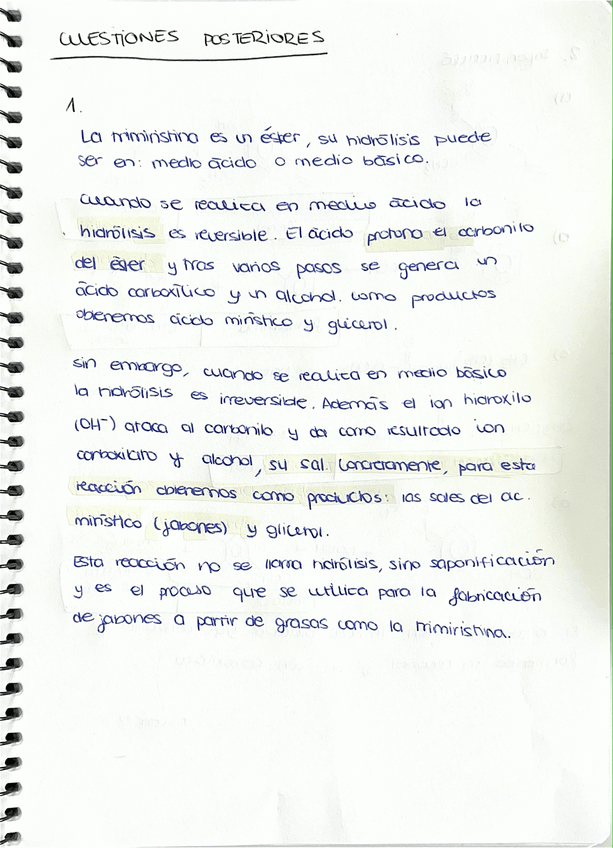 CUESTIONES POSTERIORES
1.
La trimiristina es un éster, su hidrólisis puede
ser en: medio ácido o medio básico.
Cuando se realiza en medio ácido la
hidrólisis es reversible. El ácido protona el carbonilo
del éster y tras varios pasos se genera un
ácido carboxílico y un alcohol. Como productos
obtenemos ácido mirístico y glicerol.
Sin embargo, cuando se realiza en medio básico
la hidrólisis es irreversible. Además el ion hidroxilo
(OH⁻) ataca al carbonilo y da como resultado ion
carboxilato y alcohol, su sal. Concretamente, para esta
reacción obtenemos como productos: las sales del ac.
mirístico (jabones) y glicerol.
Esta reacción no se llama hidrólisis, sino saponificación
y es el proceso que se utiliza para la fabricación
de jabones a partir de grasas como la trimiristina.